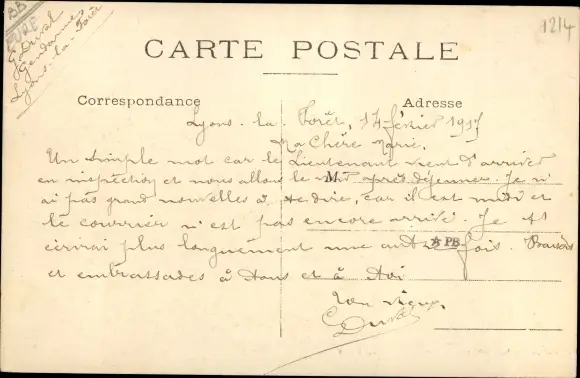 BB
EURE
G. Duval
Gendarmes
Lyons-la-Forêt
1214
CARTE POSTALE
Correspondance
Adresse
Lyons-la-Forêt, 17 février 1917
Ma Chère Marie,
Un simple mot car le Lieutenant vient d'arriver
en inspection et nous allons le voir après déjeuner. Je n'
M
ai pas grand nouvelles à te dire, car il est midi et
le courrier n'est pas encore arrivé. Je t'
écrirai plus longuement une autre fois. Baisers
PB
et embrassades à tous et à toi
Ton vieux,
Duval